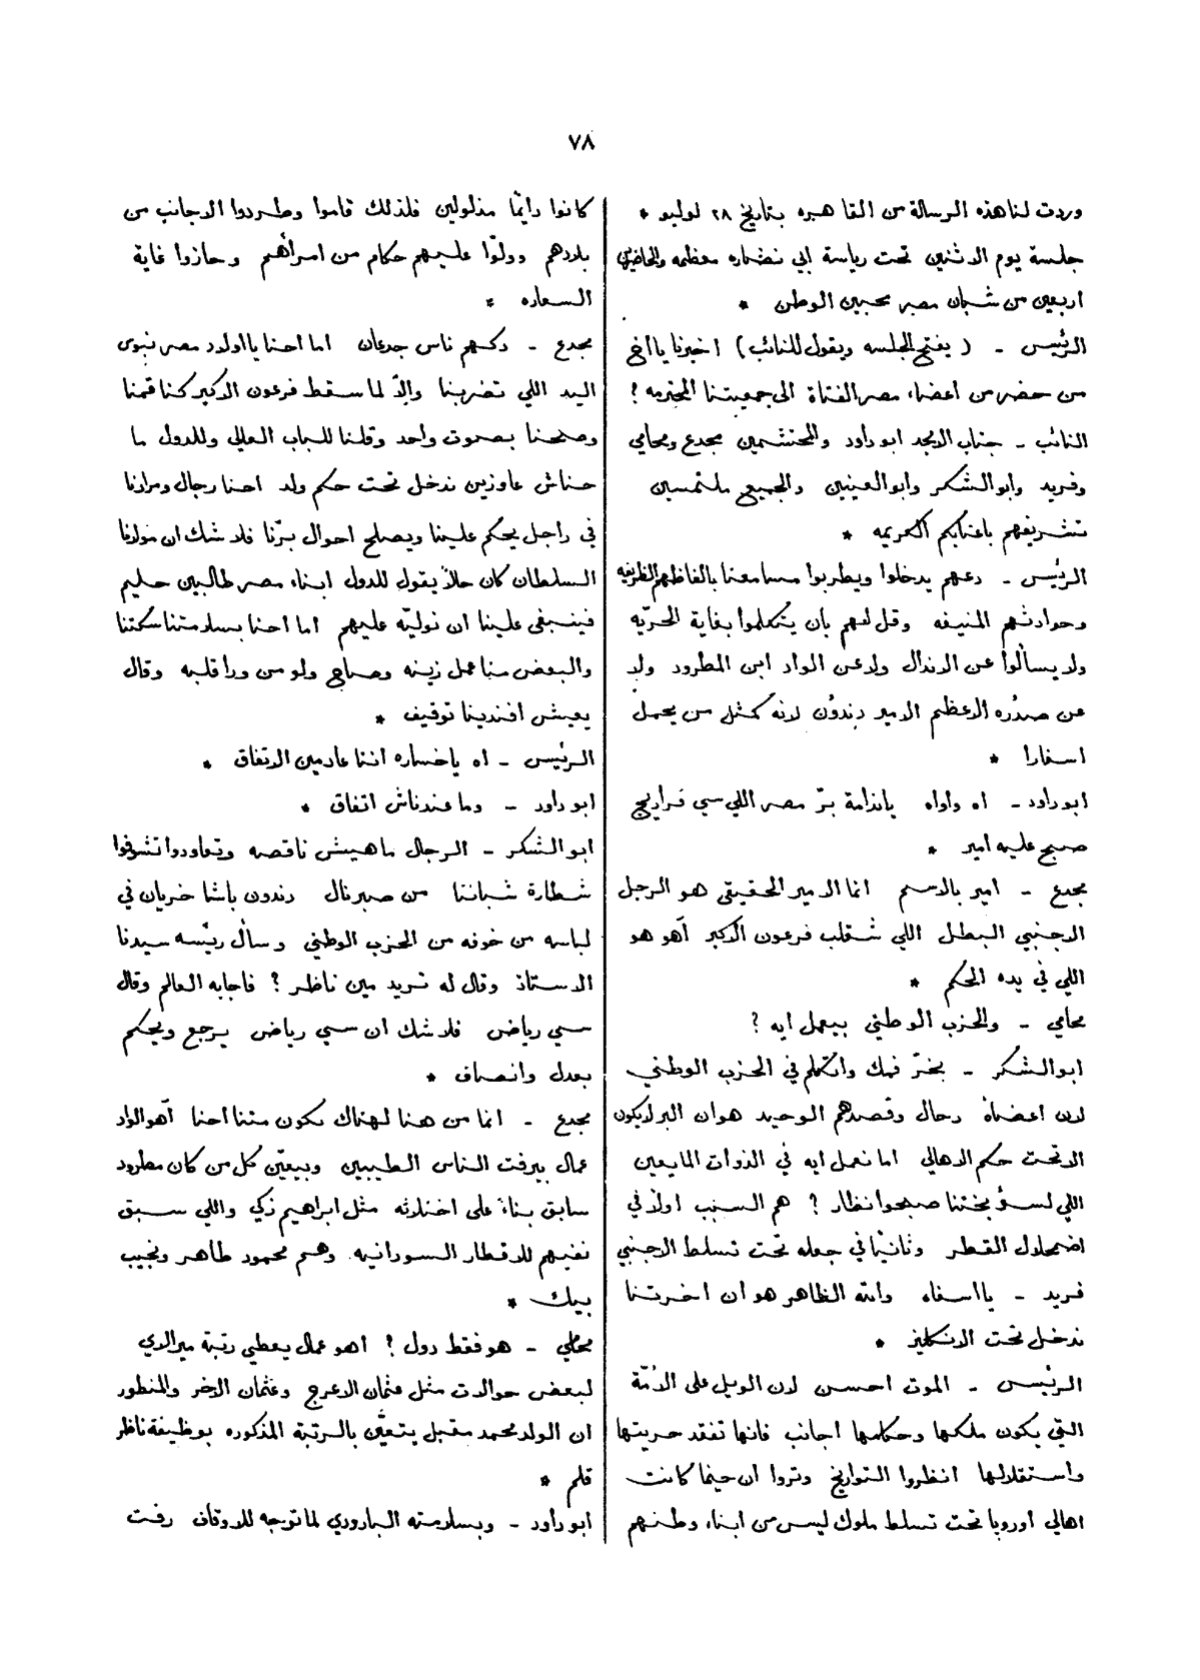 ٧٨
وردت لنا هذه الرسالة من القاهره بتاريخ ٢٨ لوليو *
جلسة يوم الاثنين تحت رياسة ابي نضاره معظمه والحاضرين
اربعين من شبان مصر محبين الوطن *
الرئيس - ( يفتح الجلسه ويقول للنائب ) اخبرنا يا اخ
من حضر من اعضاء مصر الفتاة الى جمعيتنا المحترمه ؟
النائب - جناب الامجد ابو داود والمحتشمين مجدع ومحامي
وفريد وابو الشكر وابو العينين والجميع ملتمسين
تشريفهم باعتابكم الكريمه *
الرئيس - دعهم يدخلوا ويطربوا مسامعنا بالفاظهم الظريفه
وحوادثهم المنيفه وقل لهم بان يتكلموا بغاية الحريّه
ولا يسألوا عن الاندال ولا عن الواد ابن المطرود ولا
عن صدره الاعظم الامير دندون لانه كمثل من يحمل
اسفارا *
ابو داود - اه واواه يا ندامة برّ مصر اللي سي فراريج
صبح عليه امير *
مجدع - امير بالاسم انما الامير الحقيقي هو الرجل
الاجنبي البطل اللي شقلب فرعون الاكبر آهو هو
اللي في يده الحكم *
محامي - والحزب الوطني بيعمل ايه ؟
ابو الشكر - بخّر فمك واتكلم في الحزب الوطني
لان اعضاه رجال وقصدهم الوحيد هو ان البر لا يكون
الا تحت حكم الاهالي اما نعمل ايه في الذوات المايعين
اللي لسؤ بختنا صبحوا نظار ؟ هم السبب اولاً في
اضمحلال القطر وثانيا في جعله تحت تسلط الاجنبي
فريد - يا اسفاه والله الظاهر هو ان اخرتنا
ندخل تحت الانكليز *
الرئيس - الموت احسن لان الويل على الامّة
التي يكون ملكها وحكامها اجانب فانها تفقد حريتها
واستقلالها انظروا التواريخ وتروا ان حينما كانت
اهالي اوروبا تحت تسلط ملوك ليس من ابناء وطنهم
كانوا دايمًا مذلولين فلذلك قاموا وطردوا الاجانب من
بلادهم وولّوا عليهم حكام من امرأهم وحازوا غاية
السعاده *
مجدع - دكهم ناس جدعان اما احنا يا اولاد مصر نبوس
اليد اللي تضربنا والّا لما سقط فرعون الاكبر كنا قمنا
وصحنا بصوت واحد وقلنا للباب العالي وللدول ما
حناش عاوزين ندخل تحت حكم ولد احنا رجال ومرادنا
في راجل يحكم علينا ويصلح احوال برّنا فلا شك ان مولانا
السلطان كان حالاً يقول للدول ابناء مصر طالبين حليم
فينبغي علينا ان نوليّه عليهم اما احنا بسلامتنا سكتنا
والبعض منا عمل زينه وصاح ولو من ورا قلبه وقال
يعيش افندينا توفيق *
الرئيس - اه يا خساره اننا عادمين الاتفاق *
ابو داود - وما عندناش اتفاق *
ابو الشكر - الرجال ماهيش ناقصه وتعاودوا تشوفوا
شطارة شباننا من صبر نال دندون باشا خريان في
لباسه من خوفه من الحزب الوطني وسأل ريّسه سيدنا
الاستاذ وقال له تريد مين ناظر ؟ فاجابه العالم وقال
سي رياض فلا شك ان سي رياض يرجع ويحكم
بعدل وانصاف *
مجدع - انما من هنا لهناك نكون متنا احنا آهو الواد
عمال بيرفت الناس الطيبين وبيعيّن كل من كان مطرود
سابق بناءً على اختلاسه مثل ابراهيم زكي واللي سبق
نفيهم للاقطار السودانيه وهم محمود طاهر ونجيب
بيك *
محامي - هو فقط دول ؟ اهو عمال يعطي رتبة ميرالاي
لبعض حوالات مثل عثمان الاعرج وعثمان الاخر والمنظور
ان الولد محمد مقبل يتعيّن بالرتبة المذكوره بوظيفة ناظر
قلم *
ابو داود - وبسلامته البارودي لما توجه للاوقاف رفت